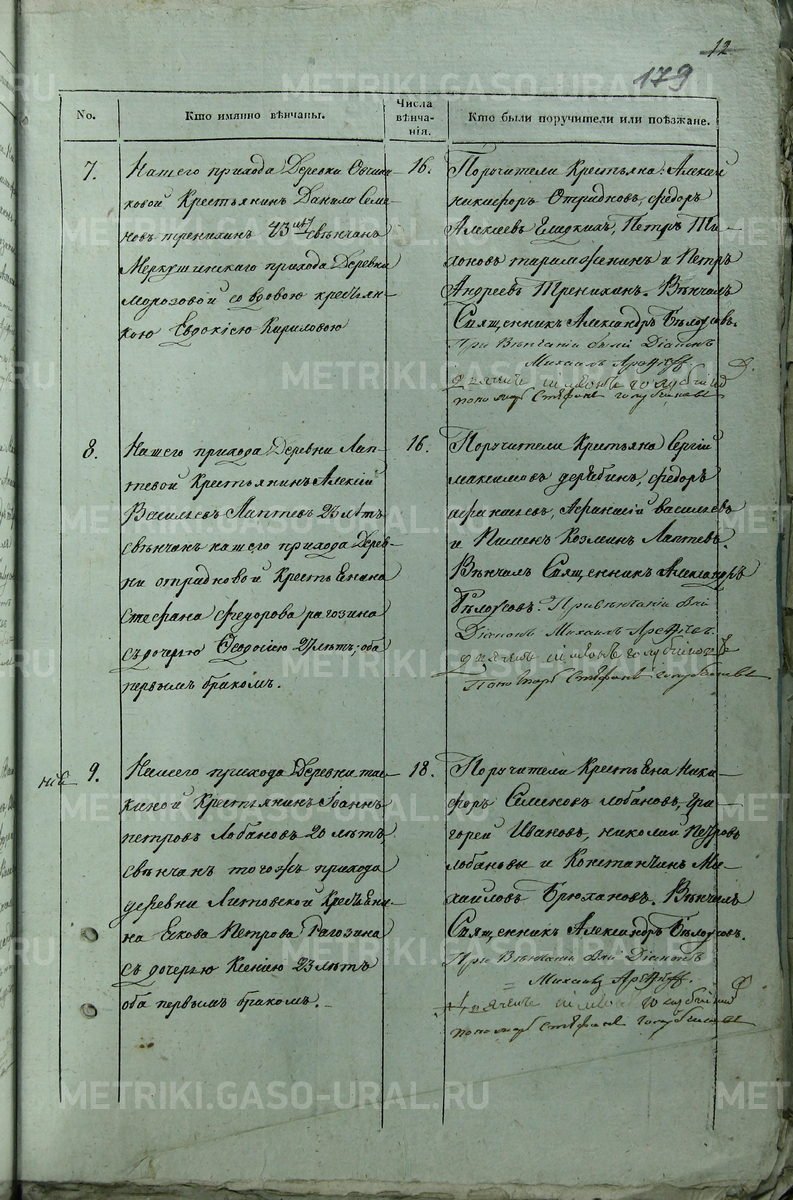 12
179
No.
Кто имянно вѣнчаны.
Числа вѣнча-
нія.
Кто были поручители или поѣзжане.
7.
Нашего прихода Деревни
ковой Крестьянин Данило Семе-
новъ тренихин 43 свѣнчан
Меркушинскаго прихода Деревни
морозовой со вдовою крестьян-
кою Евдокіею Кириловою
16.
Поручители Крестьяна: Алексий
никифоръ Отрадновъ, Федоръ
Алексеевъ Гладких, Петръ Ти-
хоновъ и Петръ
Андреевъ Тренихин. Вѣнчалъ
Священник Александръ Бѣлоусовъ.
При Вѣнчаніи были Діаконъ
Михаилъ
пономарь Стефанъ
8.
Нашего прихода Деревни Лап-
тевой Крестьянинъ Алексій
Васильевъ Лаптевъ 23 лѣтъ
свѣнчан нашего прихода Дерев-
ни отрадновой Крестьянина
Стефана Федорова рагозина
съ дочерью Ѳеодосіею 27 лѣтъ, оба
первымъ бракомъ.
16.
Поручители Крестьяна Сергій
максимовъ дерябин, Федоръ
афанасьевъ, Афанасій васильевъ
и Пимен Козмин Лаптевъ.
Вѣнчалъ Священник Александръ
Бѣлоусов. При вѣнчаніи были
Діаконъ Михаилъ
Пономарь Стефанъ
9.
Нашего прихода Деревни
киной Крестьянин Іоаннъ
петровъ Лобановъ 20 лѣтъ,
свѣнчан того жъ прихода
деревни Литовской Крестьяни-
на Якова Петрова Рагозина
съ дочерью Ксеніею 23 лѣтъ
оба первымъ бракомъ.
18.
Поручители Крестьяна Ники-
форъ Семенов лобановъ, Гри-
горей Ивановъ, николай Петровъ
лобановы и Констанчин Ми-
хайловъ Брюханов. Вѣнчалъ
Священник Александръ Бѣлоусовъ.
При Вѣнчаніи были Діаконъ
Михаилъ
пономарь Стефанъ
METRIKI.GASO-URAL.RU